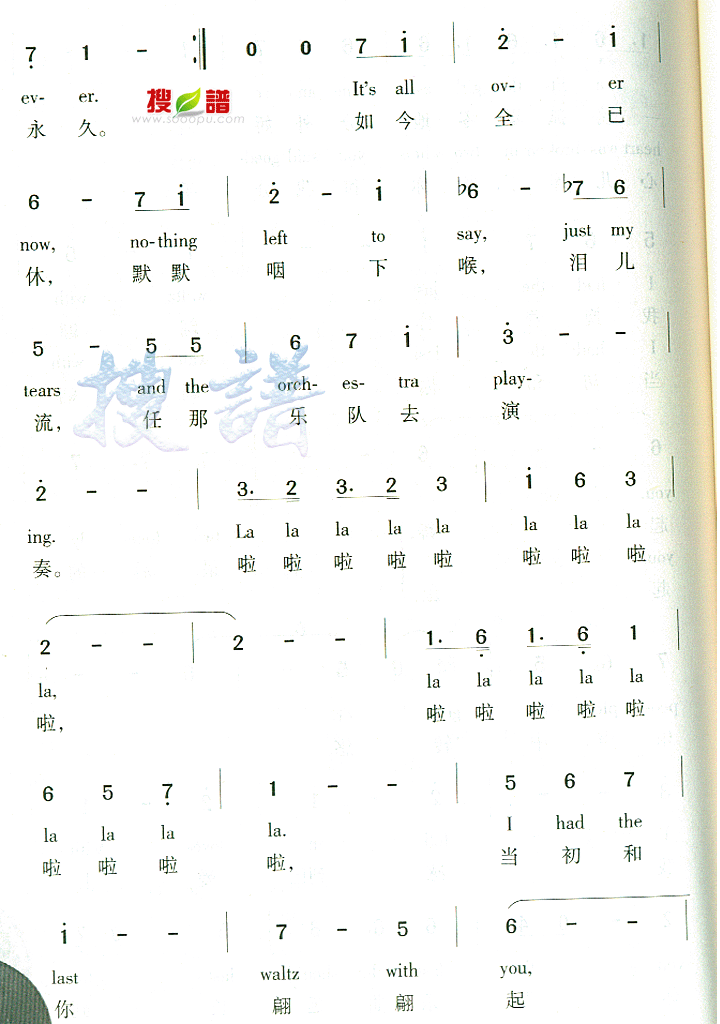 7̣ 1 - :‖ 0 0 7 i | 2̇ - i |
ev- er. It's all ov- er
永 久。 如 今 全 已
搜 譜
www.sooopu.com
6 - 7 i | 2̇ - i | ♭6 - ♭7 6 |
now, no-thing left to say, just my
休, 默 默 咽 下 喉, 泪 儿
5 - 5 5 | 6 7 i | 3̇ - - |
tears and the orch- es- tra play-
流, 任 那 乐 队 去 演
搜 譜
2̇ - - | 3. 2 3. 2 3 | i 6 3 |
ing. La la la la la la la la
奏。 啦 啦 啦 啦 啦 啦 啦 啦
2 - - | 2 - - | 1. 6̣ 1. 6̣ 1 |
la, la la la la la
啦, 啦 啦 啦 啦 啦
6 5 7̣ | 1 - - | 5 6 7 |
la la la la. I had the
啦 啦 啦 啦, 当 初 和
i - - | 7 - 5 | 6 - - |
last waltz with you,
你 翩 翩 起